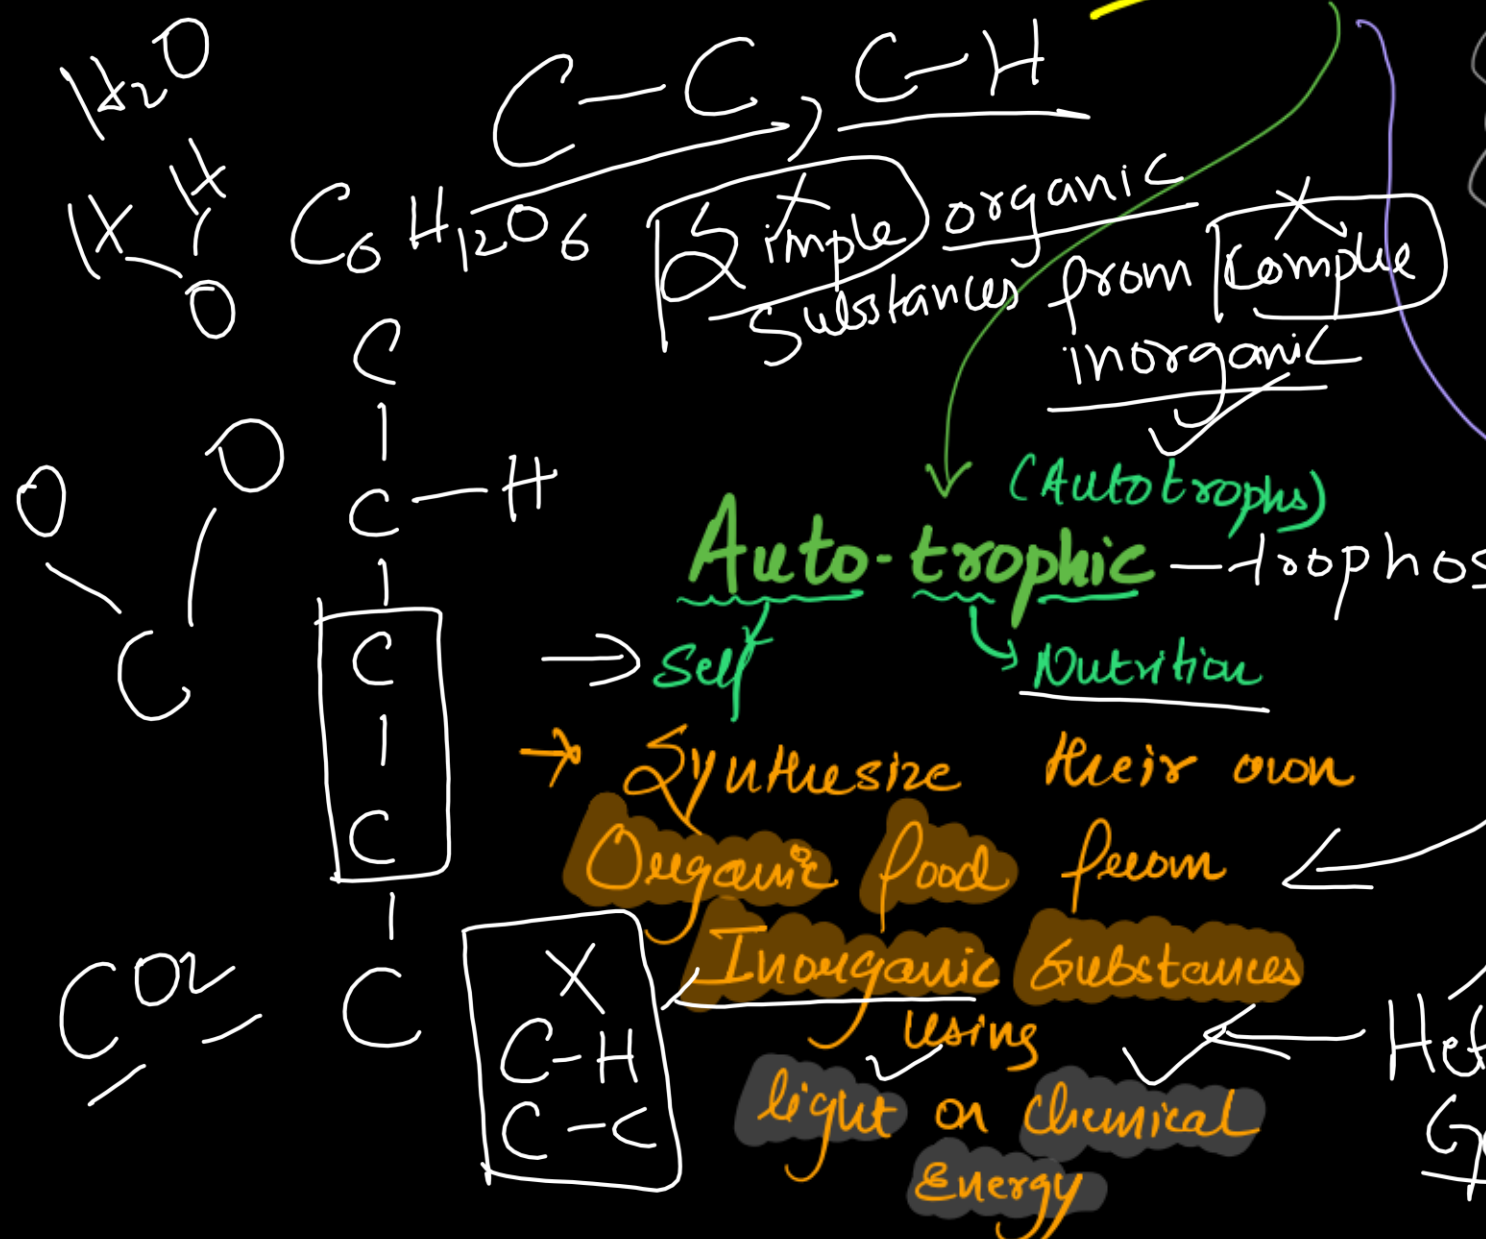 H2O
C-C, C-H
H H
O
C6H12O6
Simple organic
substances from Complex
inorganic
C
C-H
C
C
C
O O
C
CO2
(Autotrophs)
Auto-trophic - trophos
→ Self Nutrition
→ Synthesize their own
Organic food from
Inorganic Substances
using
light or chemical
Energy
X
C-H
C-C
Het